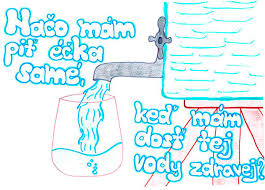 Načo mám
piť éčka
samé,
keď mám
dosť tej
vody zdravej?